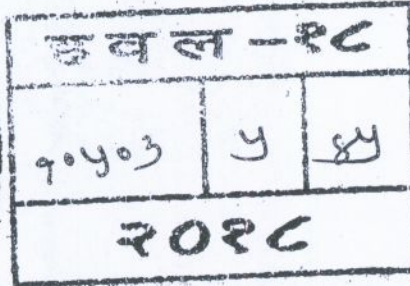 हवल - १८
१०५०३ ५ ४५
२०१८